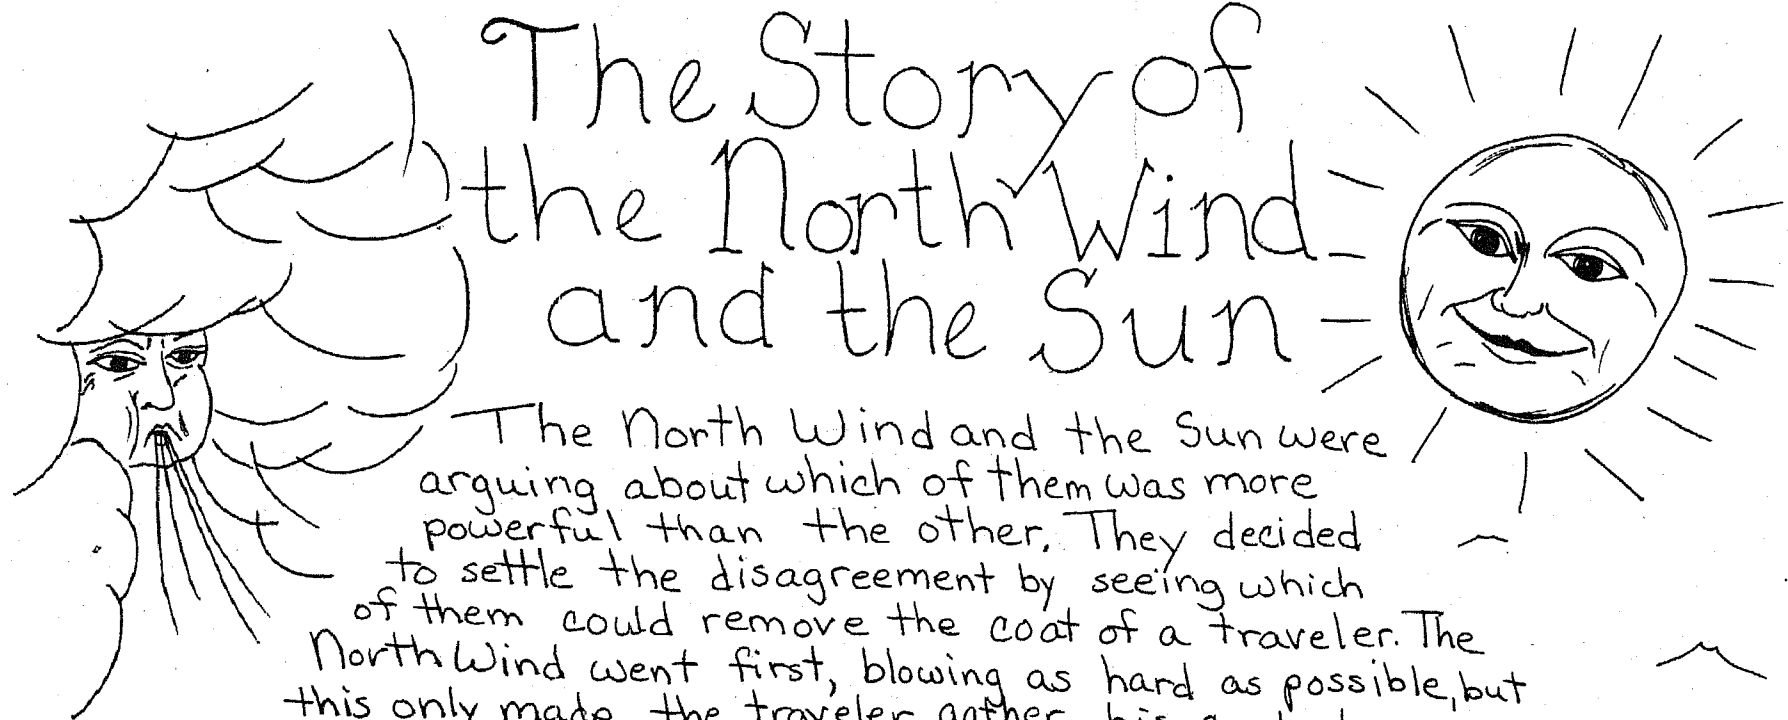 The Story of
the North Wind
and the Sun
The North Wind and the Sun were
arguing about which of them was more
powerful than the other. They decided
to settle the disagreement by seeing which
of them could remove the coat of a traveler. The
North Wind went first, blowing as hard as possible, but
this only made the traveler gather his